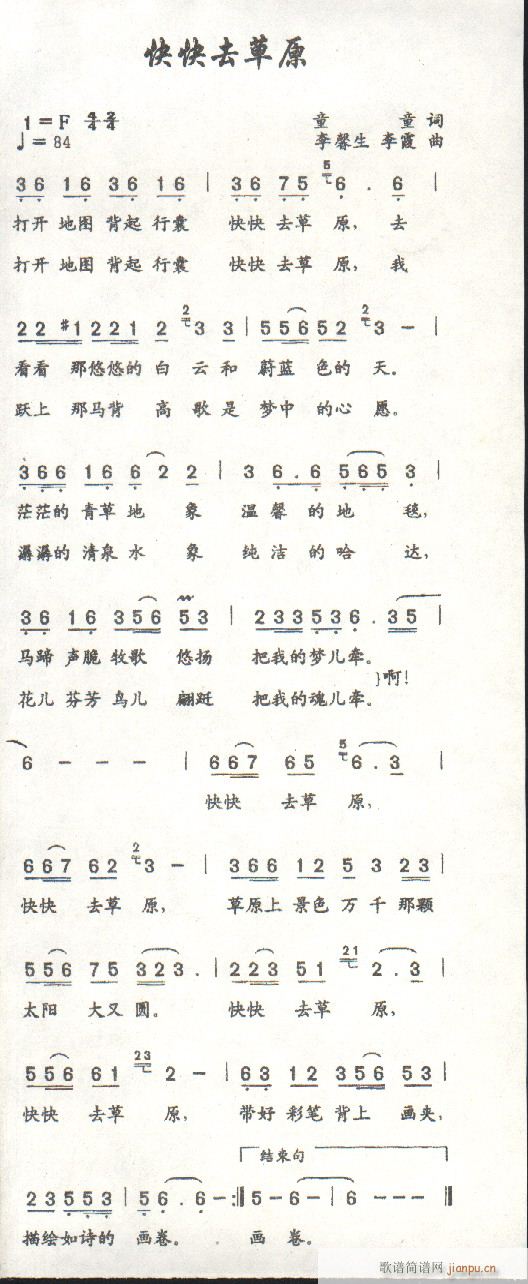 快快去草原
1=F 4/4 2/4
童 童 词
♩=84
李馨生 李霞 曲
3 6 1 6 3 6 1 6 | 3 6 7 5 5 6 . 6 |
打开 地图 背起 行囊 快快 去草 原，去
打开 地图 背起 行囊 快快 去草 原，我
2 2 #1 2 2 1 2 2 3 3 | 5 5 6 5 2 2 3 - |
看看 那悠悠的 白 云和 蔚蓝 色的 天。
跃上 那马背 高 歌是 梦中 的心 愿。
3 6 6 1 6 6 2 2 | 3 6 . 6 5 6 5 3 |
茫茫的 青草 地 象 温 馨 的 地 毯，
潺潺的 清泉 水 象 纯 洁 的 哈 达，
3 6 1 6 3 5 6 5 3 | 2 3 3 5 3 6 . 3 5 |
马蹄 声脆 牧歌 悠扬 把我的 梦儿 牵。
}啊！
花儿 芬芳 鸟儿 翩跹 把我的 魂儿 牵。
6 - - - | 6 6 7 6 5 5 6 . 3 |
快快 去草 原，
6 6 7 6 2 2 3 - | 3 6 6 1 2 5 3 2 3 |
快快 去草 原， 草原上 景色 万 千 那颗
5 5 6 7 5 3 2 3 . | 2 2 3 5 1 21 2 . 3 |
太阳 大又 圆。 快快 去草 原，
5 5 6 6 1 23 2 - | 6 3 1 2 3 5 6 5 3 |
快快 去草 原， 带好 彩笔 背上 画夹，
结束句
2 3 5 5 3 | 5 6 . 6 - :‖ 5 - 6 - | 6 - - ‖
描绘如诗的 画卷。 画 卷。
歌谱简谱网
jianpu.cn